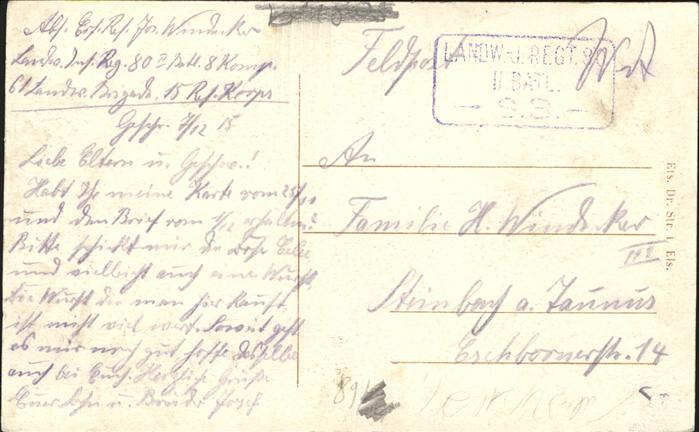 Abs. Ers. Res. Jos. Windecker
Landw. Inf. Reg. 80 II Batl. 8 Komp.
61 Landw. Brigade. 15 Res. Korps
Geschr. 7/12 15
Liebe Eltern u. Geschw.!
Habt Ihr meine Karte vom 25/11
und den Brief vom 1/12 erhalten?
Bitte schickt mir die Dose
und vielleicht auch eine Wurst,
die Wurst die man hier kauft
ist nicht viel wert. Soweit geht
es mir noch gut, hoffe dasselbe
auch bei Euch. Herzliche Grüße
Euer Sohn u. Bruder Josef
Feldpost
LANDW.-J.-REGT. 80
II BATL.
— S.B. —
An
Familie H. Windecker
Steinbach a. Taunus
Eschbornerstr. 14
Els. Dr. Str. i. Els.
89